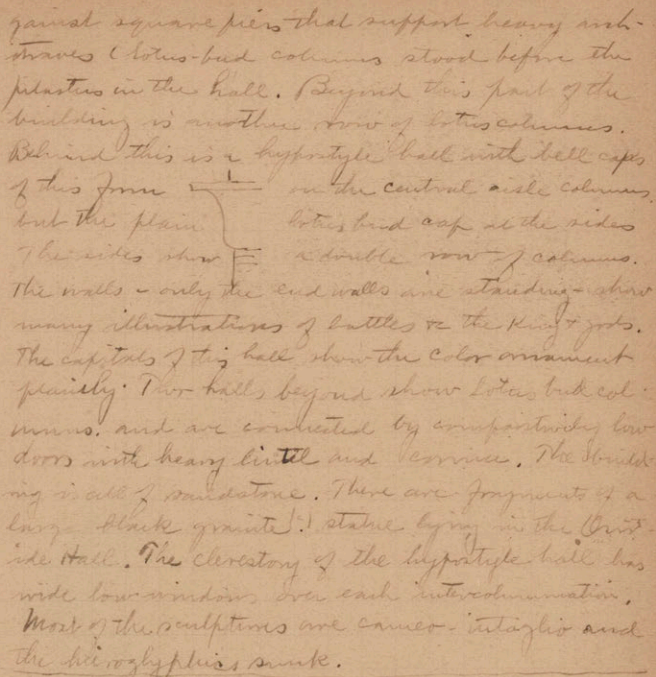 gainst square piers that support heavy arch-
itraves (lotus-bud columns stood before the
pilasters in the hall. Beyond this part of the
building is another row of lotus columns.
Behind this is a hypostyle hall with bell caps
of this form on the central aisle columns,
but the plain lotus bud cap at the sides
The sides show a double row of columns.
The walls - only the end walls are standing - show
many illustrations of battles & the King & gods.
The capitals of this hall show the color ornament
plainly. The halls beyond show Lotus bud col-
umns. and are connected by comparatively low
doors with heavy lintel and cornice. The build-
ing is all of sandstone. There are fragments of a
large black granite(?) statue lying in the Out-
ide Hall. The clerestory of the hypostyle hall has
wide low windows over each intercolumniation.
Most of the sculptures are cameo-intaglio and
the hieroglyphics sunk.